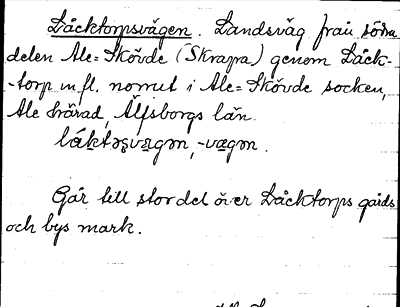 Låcktorpsvägen. Landsväg från södra
delen Ale-Skövde (Skrapa) genom Låck-
-torp m.fl. nomut i Ale-Skövde socken,
Ale härad, Älfsborgs län.
låktəsvægən, -vægən.
Går till stor del över Låcktorps gårds
och bys mark.